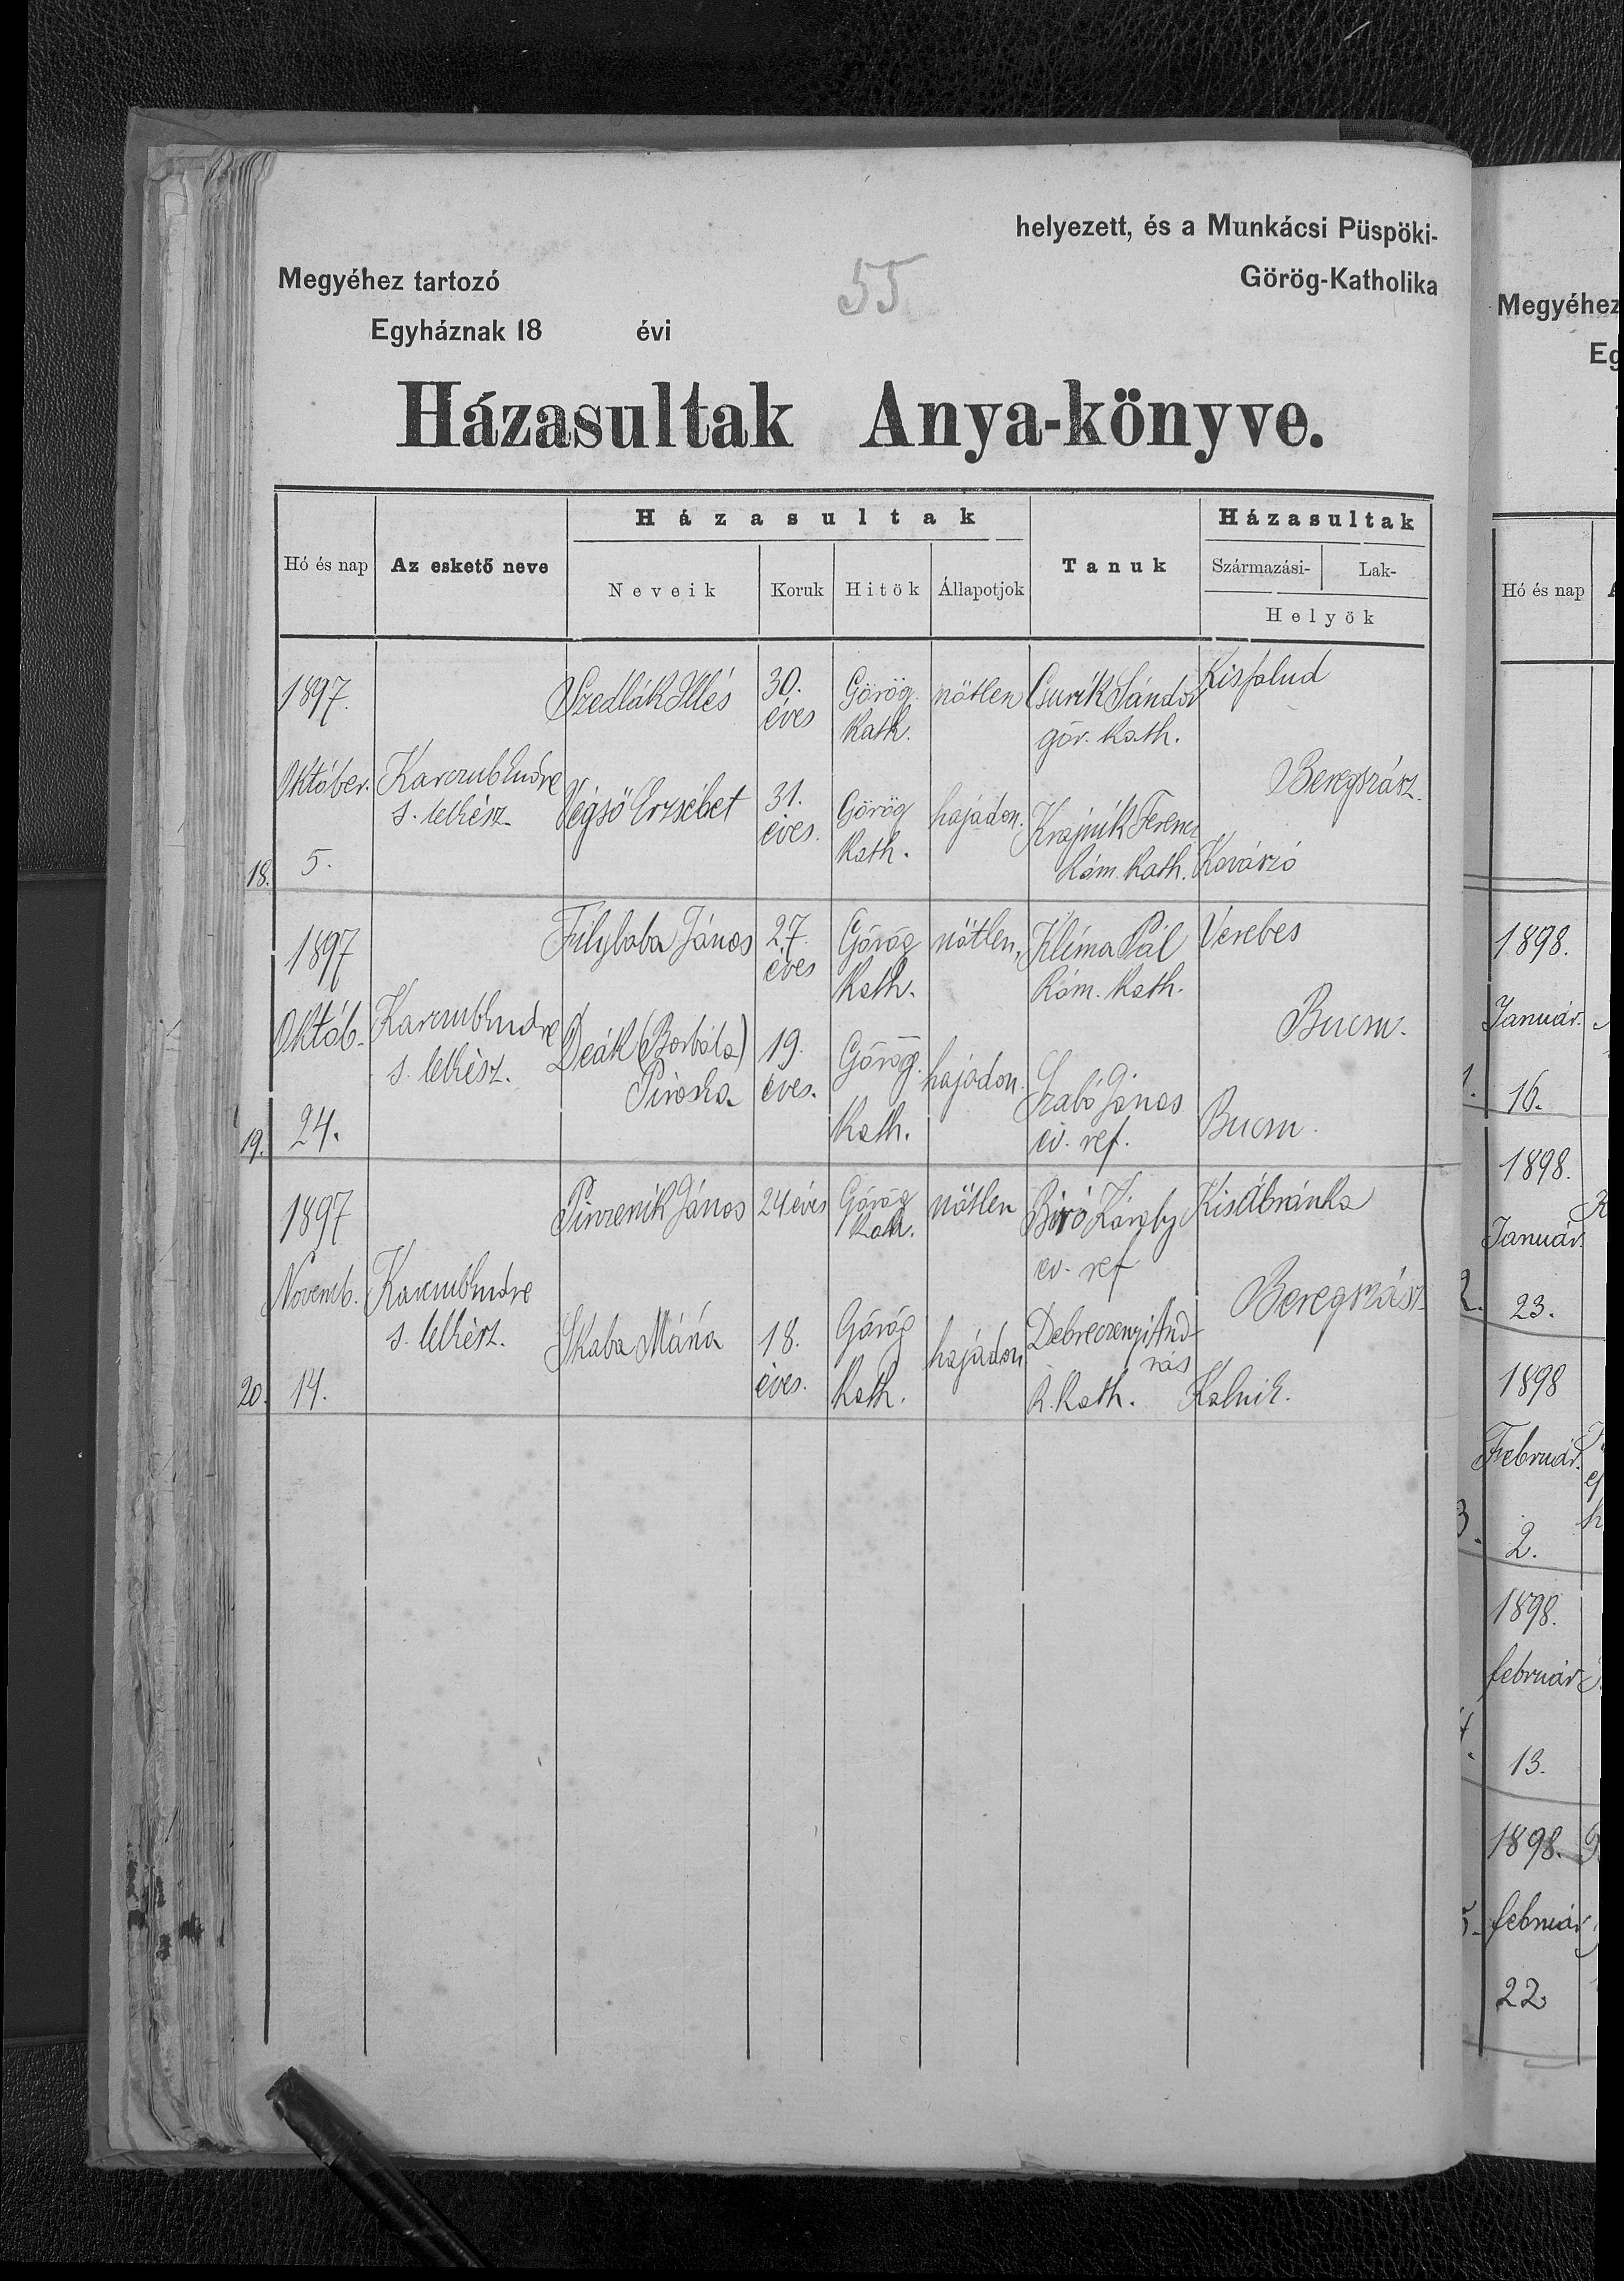 helyezett, és a Munkácsi Püspöki-
Megyéhez tartozó
55
Görög-Katholika
Egyháznak 18 évi
Házasultak Anya-könyve.
Hó és nap
Az eskető neve
Házasultak
Neveik
Koruk
Hitök
Állapotjok
Tanuk
Házasultak
Származási-
Lak-
Helyök
18.
1897.
Október.
5.
s. lelkész
Szedlák Illés
30.
éves
Görög
Kath.
nőtlen
Csurik Sándor
gör. kath.
Kisfalud
Beregszász.
Végső Erzsébet
31.
éves.
Görög
Kath.
hajadon.
Krajnik Ferencz
Róm. Kath.
Kovászó
19.
1897
Októb.
24.
s. lelkész.
János
27.
éves
Görög
Kath.
nőtlen,
Klima Pál
Róm. Kath.
Verebes
Bucsu.
Deák (Borbála)
Piroska
19.
éves.
Görög
Kath.
hajadon.
Szabó János
ev. ref.
Bucsu.
20.
1897
Novemb.
14.
s. lelkész.
Pinzenik János
24 éves
Görög
Kath.
nőtlen
Biró Károly
ev. ref
KisÁbránka
Beregszász
Skaba Mária
18.
éves.
Görög
Kath.
hajadon
Debreczenyi And-
rás
R. Kath.
Kalnik.
Megyéhez
Eg
Hó és nap
1.
1898.
Január.
16.
2.
1898.
Január.
23.
3.
1898
Február.
2.
4.
1898.
február
13.
5.
1898.
február
22.